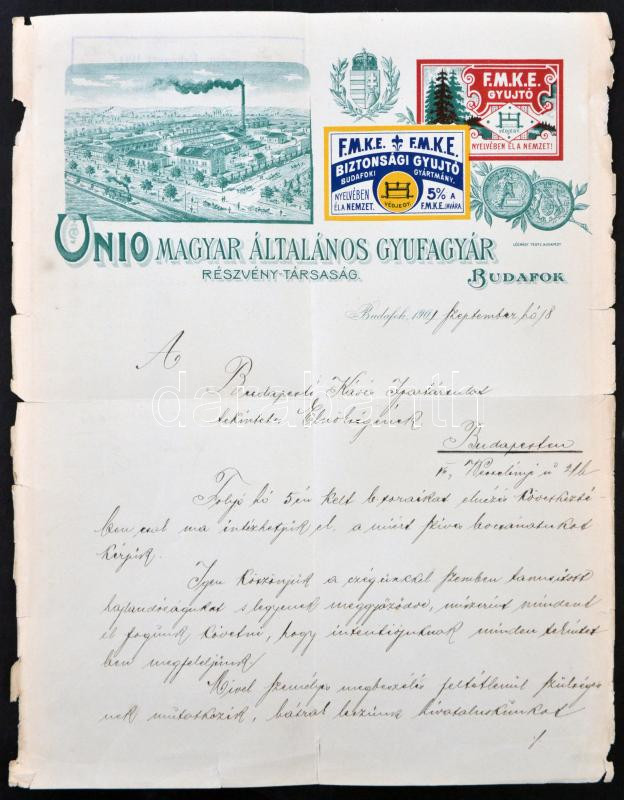 F.M.K.E.
GYUJTÓ
VÉDJEGY.
NYELVÉBEN ÉL A NEMZET!
F.M.K.E. F.M.K.E.
BIZTONSÁGI GYUJTÓ
BUDAFOKI GYÁRTMÁNY.
NYELVÉBEN ÉL A NEMZET.
VÉDJEGY.
5% A F.M.K.E. JAVÁRA.
UNIO MAGYAR ÁLTALÁNOS GYUFAGYÁR
RÉSZVÉNY-TÁRSASÁG.
BUDAFOK
Budafok, 1901 September hó 18
A
Budapesti Kávés Ipartársulat
tekintetes Elnökségének
Budapesten
Wesselényi u
Folyó hó 5én kelt b. soraikat elnézés következté-
ben csak ma intézhetjük el, a miért szíves bocsánatukat
kérjük.
Igen köszönjük a czégünkkel szemben tanusított
hajlandóságukat s legyenek meggyőződve, miszerint mindent
el fogunk követni, hogy intentiójuknak minden tekintet
ben megfeleljünk.
Mivel személyes megbeszélés feltétlenül szüksé
nek mutatkozik, bátrak leszünk hivatalukat